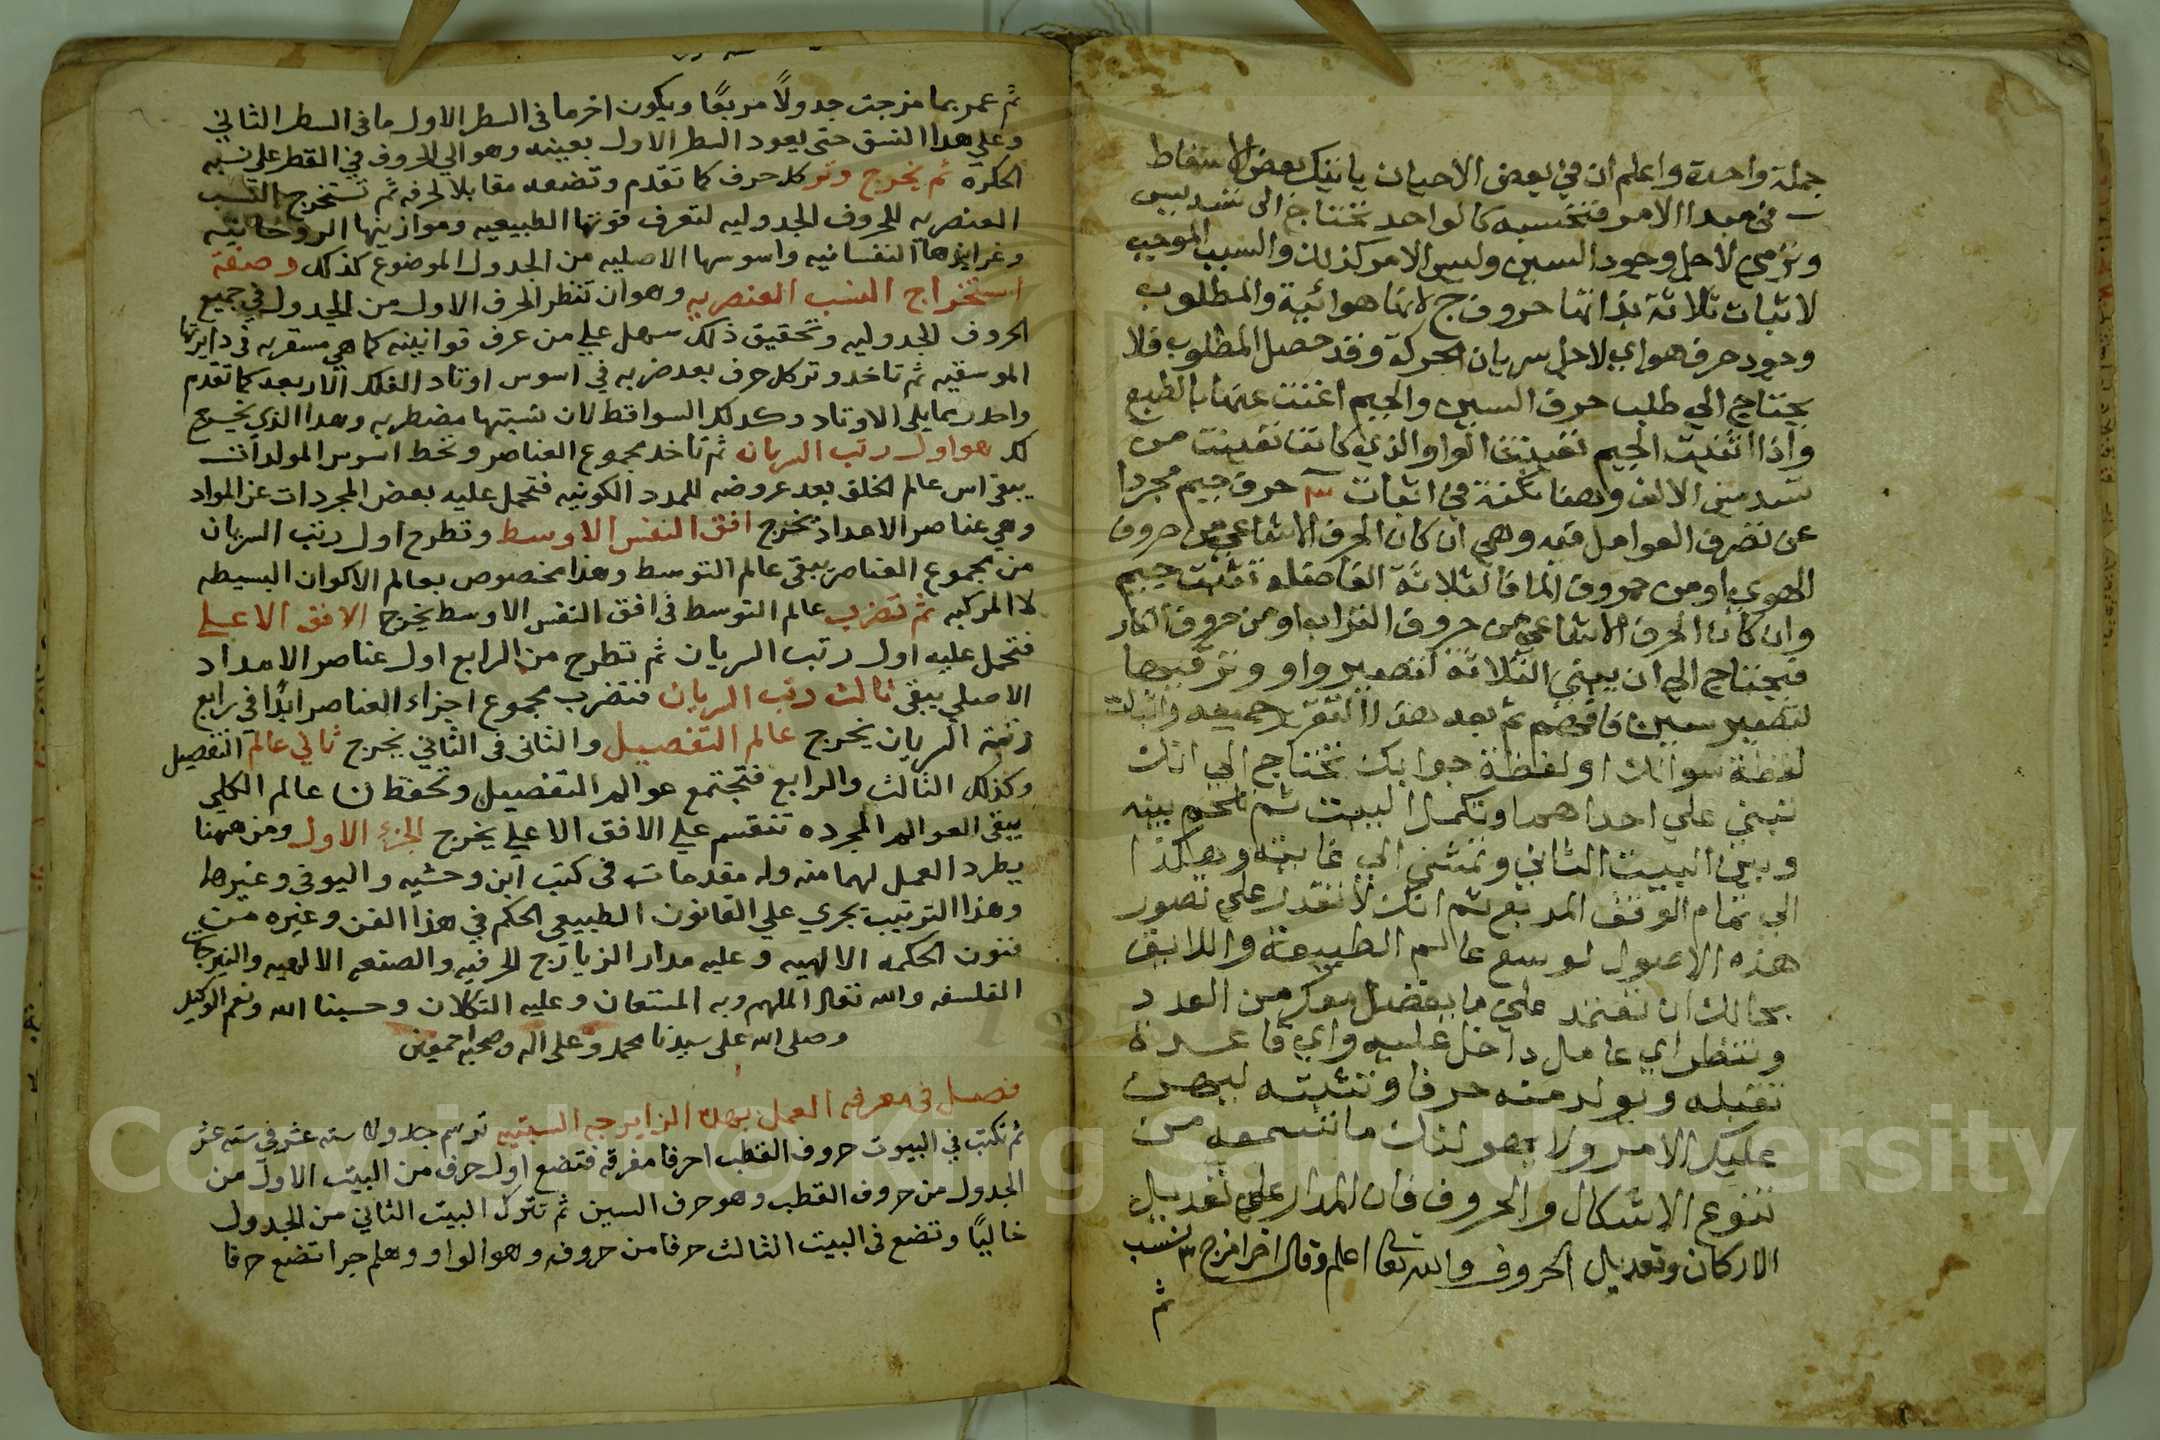 جملة واحدة واعلم ان في بعض الاحيان ياتيك بعض الاسقاط
في مبدا الامر فتحسبه كالواحد تحتاج الى تسديس
وترمي لاجل وجود السين وليس الامر كذلك والسبب الموجب
لاثبات ثلاثة بذاتها حروف ج لانها هوائية والمطلوب
وجود حرف هواي لاجل سريان الحركة وقد حصل المطلوب فلا
يحتاج الي طلب حرف السين والجيم اغنت عنها بالطبع
واذا اثبت الجيم نفيت الواو الذي كانت نفيت من
تسديس الالف وهنا نكتة في اثبات حرف جيم مجردا
عن تصرف العوامل فيه وهي ان كان الحرف من حروف
الهوي او من حروف الما فالثلاثة الفاضله تثبت جيم
وان كان الحرف من حروف التراب او من حروف النار
فيحتاج الي ان يبني الثلاثة لتصير واو وترقيها
لتصير سين فافهم ثم بعد هذا التقرير جميعه واثبات
لفظة سوالك او لفظة جوابك تحتاج الي انك
تبني علي احداهما وتكمل البيت ثم تلحم بينه
وبين البيت الثاني وتمشي الي غايته وهكذا
الي تمام الوفق المربع ثم انك لا تقدر علي تصور
هذه الاصول لوسع عالم الطبيعة واللايق
بحالك ان تعتمد علي ما يفضل معك من العدد
وتنظر اي عامل داخل عليه واي قاعدة
تقبله وتولد منه حرفا وتثبته ليهون
عليك الامر ولا يهولنك ما تسمعه من
تنوع الاشكال والحروف فان المدار علي تعديل
الاركان وتعديل الحروف والله تعا اعلم وقال اخر امزج
ثم
ثم عمر بما مزجت جدولا مربعا ويكون اخر ما في السطر الاول ما في السطر الثاني
وعلي هدا النسق حتى يعود السطر الاول بعينه وهوالي الحروف في القطر علي نسبه
الحكره ثم يخرج وتر كل حرف كما تقدم وتضعه مقابلا لحرفه ثم تستخرج النسب
العنصريه للحروف الجدوليه لتعرف قوتها الطبيعيه وموازينها الروحانيه
وغرايزها النفسانيه واسوسها الاصليه من الجدول الموضوع كذلك وصفة
استخراج النسب العنصريه وهو ان تنظر الحرف الاول من الجدول في جميع
الحروف الجدوليه وتحقيق ذلك سهل علي من عرف قوانينه كما هي مستقريه في دايرتها
الموسقيه ثم تاخد وتر كل حرف بعد ضربه في اسوس اوتاد الفلك الاربعه كما تقدم
واحذر مما يلي الاوتاد وكدلك السواقط لان نسبتها مضطربه وهدا الذي يخرج
لك هو اول رتب السريان ثم تاخد مجموع العناصر وتحط اسوس المولدات
يبقي اس عالم الخلق بعد عروضه للمدد الكونيه فتحمل عليه بعض المجردات عن المواد
وهي عناصر الامداد يخرج افق النفس الاوسط وتطرح اول رتب السريان
من مجموع العناصر يبقي عالم التوسط وهذا مخصوص بعالم الاكوان البسيطه
لا المركبه ثم تضرب عالم التوسط في افق النفس الاوسط يخرج الافق الاعلي
فتحمل عليه اول رتب السريان ثم تطرح من الرابع اول عناصر الامداد
الاصلي يبقي ثالث رتب السريان فتضرب مجموع اجزاء العناصر ابدا في رابع
رتبة السريان يخرج عالم التفصيل والثاني في الثاني يخرج ثاني عالم التفصيل
وكذلك الثالث والرابع فتجتمع عوالم التفصيل وتحط من عالم الكلي
يبقي العوالم المجرده تنقسم علي الافق الاعلي يخرج الجزء الاول ومن ههنا
يطرد العمل لهامنه وله مقدمات في كتب ابن وحشيه واليوني وغيرها
وهذا الترتيب يجري علي القانون الطبيعي الحكم في هذا الفن وغيره من
فنون الحكمه الالهيه وعليه مدار الزيارج الحرفيه والصنعه الالهيه والنيرجات
الفلسفه والله تعالى الملهم وبه المستعان وعليه التكلان وحسبنا الله ونعم الوكيل
وصلى الله على سيدنا محمد وعلى اله وصحبه اجمعين
فصل في معرفه العمل بهذه الزايرجه السبتيه ترسم جدولا سته عشر في سته عشر
ثم تكتب في البيوت حروف القطب احرفا مفرقه فتضع اول حرف من البيت الاول من
الجدول من حروف القطب وهو حرف السين ثم تترك البيت الثاني من الجدول
خاليا وتضع في البيت الثالث حرفا من حروفه وهو الواو وهلم جرا تضع حرفا
Copyright © King Saud University